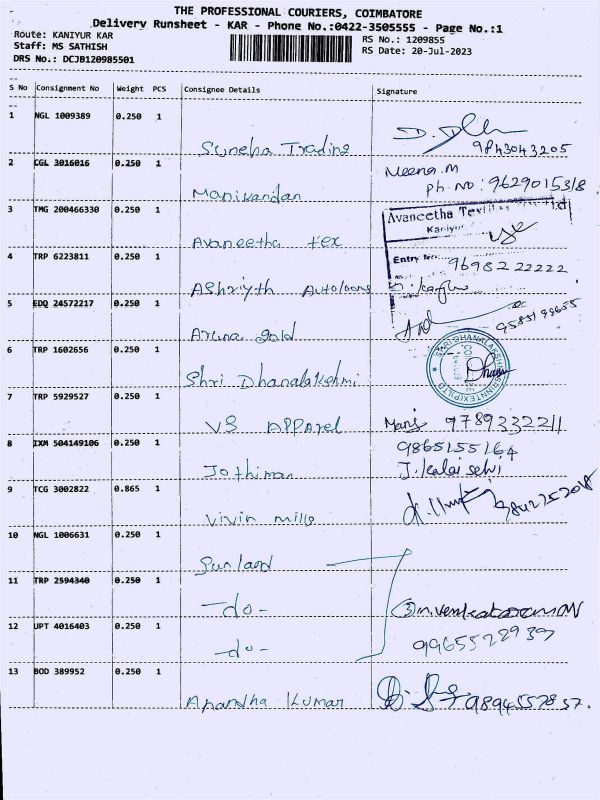 THE PROFESSIONAL COURIERS, COIMBATORE
Delivery Runsheet - KAR - Phone No.:0422-3505555 - Page No.:1
Route: KANIYUR KAR
RS No.: 1209855
Staff: MS SATHISH
RS Date: 20-Jul-2023
DRS No.: DCJB120985501
S No Consignment No Weight PCS Consignee Details Signature
1 NGL 1009389 0.250 1
9843043205
Suneha Trading
2 CGL 3016016 0.250 1
Meena.M
Ph. NO: 9629015318
Manikandan
3 TMG 200466330 0.250 1
Avaneetha
Kaniyur
Avaneetha tex
4 TRP 6223811 0.250 1
Entry No:
9698222222
Ashriyth Autoloons
5 EDQ 24572217 0.250 1
9585199655
Aruna gold
6 TRP 1602656 0.250 1
SHRI DHANALAKSHMI
Shri Dhanalakshmi
7 TRP 5929527 0.250 1
Manj 9789332211
VS Apparel
8 IXM 504149106 0.250 1
9865155164
J. kalai selvi
Jothimani
9 TCG 3002822 0.865 1
9842252018
Vivin mills
10 NGL 1006631 0.250 1
Sunland
11 TRP 2594340 0.250 1
-do-
12 UPT 4016403 0.250 1
9965522939
-do-
13 BOD 389952 0.250 1
9894557857.
Anandha Kumar